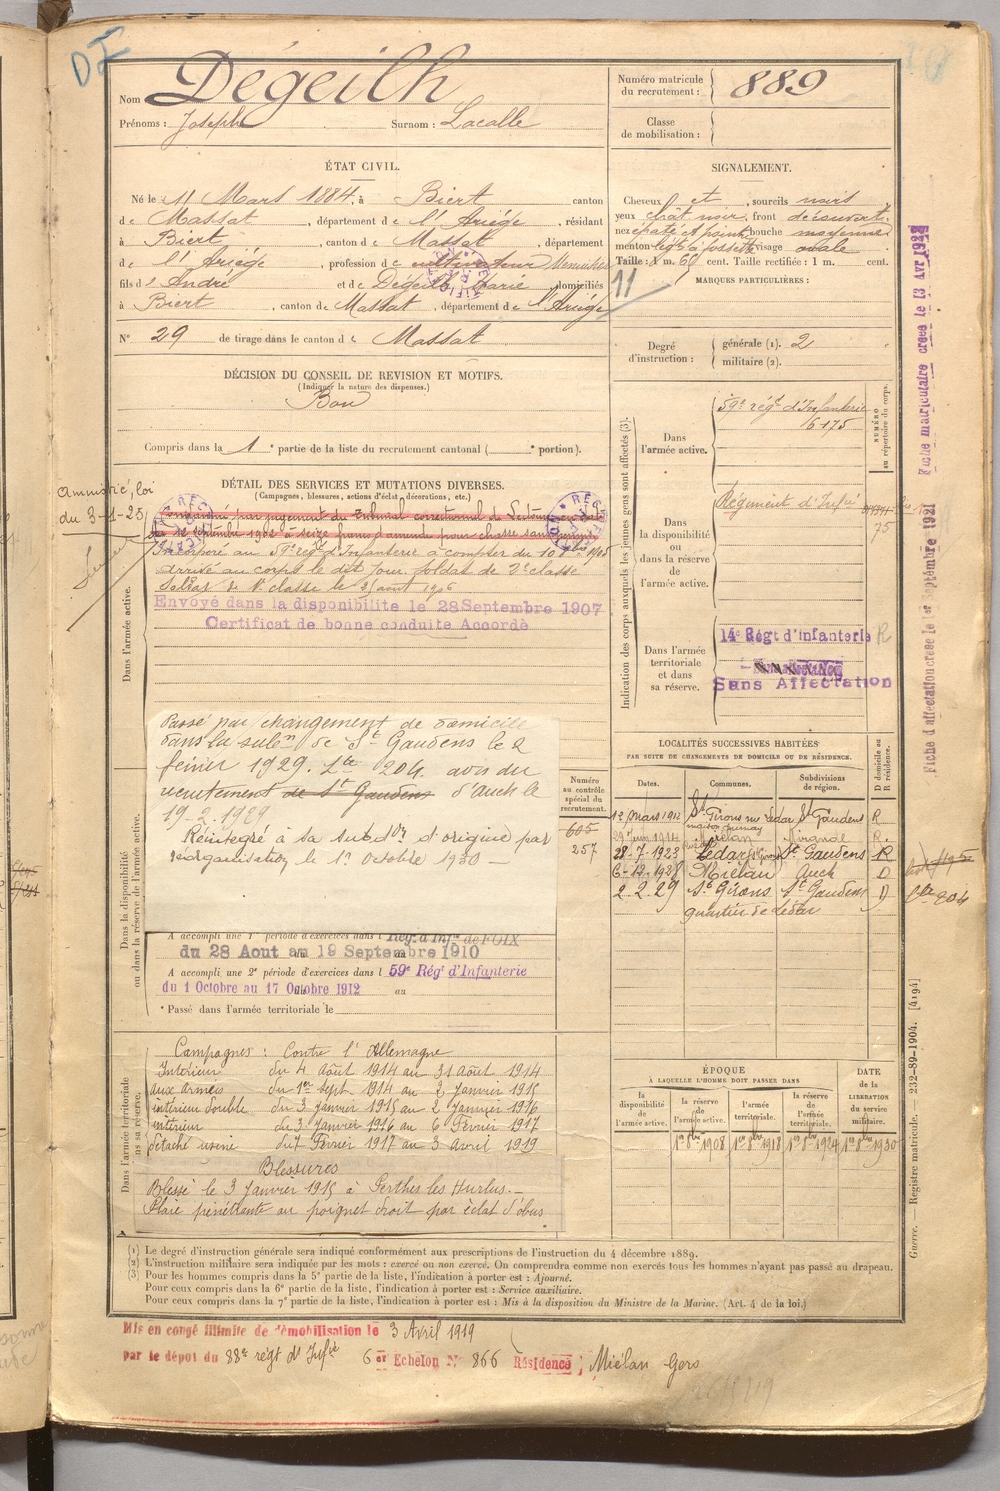 DI
Nom Dégeilh
Prénoms : Joseph Surnom : Lacalle
Numéro matricule du recrutement : 889
Classe de mobilisation :
ÉTAT CIVIL.
Né le 11 Mars 1884, à Biert canton
de Massat, département de l'Ariége, résidant
à Biert, canton de Massat, département
de l'Ariége, profession de cultivateur Menuisier
fils d'André et de Dégeilh Marie domiciliés
à Biert, canton de Massat, département de l'Ariége
N° 29 de tirage dans le canton de Massat
SIGNALEMENT.
Cheveux et, sourcils noirs
yeux chât noir, front découvert,
nez épaté et pointu bouche moyenne
menton lég à fossette visage ovale
Taille : 1 m. 69 cent. Taille rectifiée : 1 m. cent.
MARQUES PARTICULIÈRES :
11
Degré d'instruction : générale (1). 2
militaire (2).
DÉCISION DU CONSEIL DE REVISION ET MOTIFS.
(Indiquer la nature des dispenses.)
Bon
Compris dans la 1e partie de la liste du recrutement cantonal (e portion).
DÉTAIL DES SERVICES ET MUTATIONS DIVERSES.
(Campagnes, blessures, actions d'éclat, décorations, etc.)
Amnistié, loi
du 3-1-25
Condamné par jugement du Tribunal correctionnel de
du 12 septembre 1902 à seize francs d'amende pour chasse sans permis
Incorporé au 59e régt d'Infanterie à compter du 10 8bre 1905
arrivé au corps le dit jour, soldat de 2e classe
Soldat de 1e classe le 21 août 1906
Envoyé dans la disponibilité le 28 Septembre 1907
Certificat de bonne conduite Accordé
Dans l'armée active.
Passé par changement de domicile
dans la subon de St Gaudens le 2
février 1929. Lte 204. avis du
recrutement de St Gaudens d'Auch le
19-2-1929
Réintégré à sa subdon d'origine par
réorganisation le 1er Octobre 1930 —
Dans la disponibilité ou dans la réserve de l'armée active.
A accompli une 1e période d'exercices dans l Rég. d'Infie de FOIX
du 28 Aout au 19 Septembre 1910
A accompli une 2e période d'exercices dans l 59e Régt d'Infanterie
du 1 Octobre au 17 Octobre 1912 au
Passé dans l'armée territoriale le
Campagnes : Contre l'Allemagne
Intérieur du 4 Août 1914 au 31 Août 1914
aux armées du 1er Sept. 1914 au 2 Janvier 1915
intérieur double du 3 Janvier 1915 au 2 Janvier 1916
intérieur du 3 Janvier 1916 au 6 Février 1917
détaché usine du 7 Février 1917 au 3 Avril 1919
Blessures
Blessé le 3 Janvier 1915 à Perthes les Hurlus.—
Plaie pénétrante au poignet droit par éclat d'obus
Dans l'armée territoriale
Indication des corps auxquels les jeunes gens sont affectés (3).
NUMÉRO au répertoire du corps.
Dans l'armée active.
59e régt d'Infanterie
6175
Dans la disponibilité ou dans la réserve de l'armée active.
Régiment d'Infie
75
Dans l'armée territoriale et dans sa réserve.
14e Régt d'infanterie R
Sans Affectation
Numéro au contrôle spécial du recrutement.
605
257
LOCALITÉS SUCCESSIVES HABITÉES
PAR SUITE DE CHANGEMENTS DE DOMICILE OU DE RÉSIDENCE.
Dates. Communes. Subdivisions de région. D domicile ou R résidence.
12 mars 1912 St Girons rue Lédar St Gaudens R
29 juin 1914 Miélan Mirande R.
28-7-1923 Lédar St Girons St Gaudens R
6-12-1928 Miélan Auch D
2.2.29 St Girons St Gaudens D
quartier de Lédar
Lte 204
ÉPOQUE
À LAQUELLE L'HOMME DOIT PASSER DANS
la disponibilité de l'armée active. la réserve de l'armée active. l'armée territoriale. la réserve de l'armée territoriale. DATE de la LIBERATION du service militaire.
1er 8bre 1908 1er 8bre 1918 1er 8bre 1924 1er 8bre 1930
(1) Le degré d'instruction générale sera indiqué conformément aux prescriptions de l'instruction du 4 décembre 1889.
(2) L'instruction militaire sera indiquée par les mots : exercé ou non exercé. On comprendra comme non exercés tous les hommes n'ayant pas passé au drapeau.
(3) Pour les hommes compris dans la 5e partie de la liste, l'indication à porter est : Ajourné.
Pour ceux compris dans la 6e partie de la liste, l'indication à porter est : Service auxiliaire.
Pour ceux compris dans la 7e partie de la liste, l'indication à porter est : Mis à la disposition du Ministre de la Marine. (Art. 4 de la loi.)
Mis en congé illimité de démobilisation le 3 Avril 1919
par le dépot du 88e régt d'Infie 6e Echelon N° 866 Résidence Miélan Gers
Fiche matriculaire créée le 13 Avr 1928
Fiche d'affectation créée le 1er Septembre 1921
Guerre. — Registre matricule. — 232-89-1904. [4194]